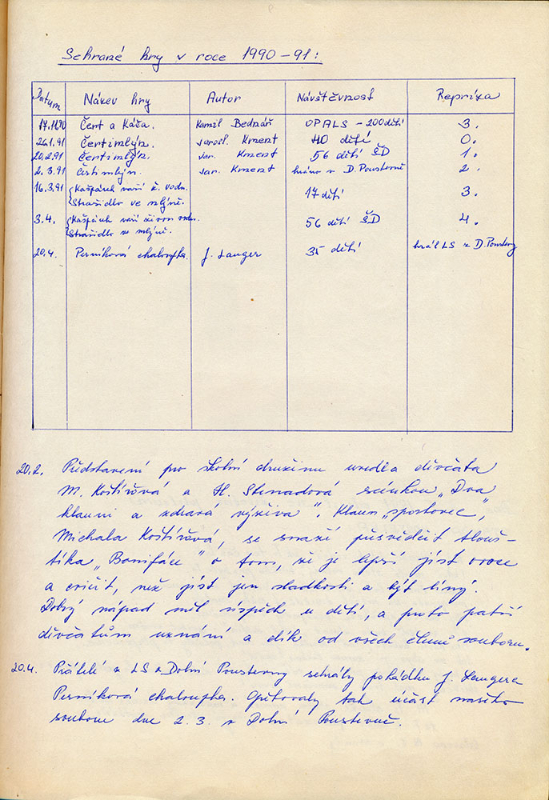 Sehrané hry v roce 1990-91:
Datum Název hry Autor Návštěvnost Repríza
Čert a Káča. Kamil Bednář OPALS - 200 dětí 3.
26.1.91 Čertimlýn. Jarosl. Kment 40 dětí 0.
20.2.91 Čertimlýn. Jar. Kment 56 dětí ŠD 1.
2.3.91 Čertimlýn. Jar. Kment hráno v D. Poustevně 2.
16.3.91 Kašpárek vaří ž. vodu. 17 dětí 3.
Strašidlo ve mlýně.
3.4. Kašpárek vaří živou vodu. 56 dětí ŠD 4.
Strašidlo ve mlýně.
20.4. Perníková chaloupka J. Langer 35 dětí hrál LS z D. Poustevny
20.2. Představení pro školní družinu uvedla děvčata
M. Koštířová a H. scénkou „Dva
klauni a zdravá výživa". Klaun „sportovec",
Michala Koštířová, se snaží přesvědčit tlouš-
tíka „Bonifáce" o tom, že je lepší jíst ovoce
a cvičit, než jíst jen sladkosti a být líný.
Dobrý nápad měl úspěch u dětí, a proto patří
děvčatům uznání a dík od všech členů souboru.
20.4. Přátelé z LS z Dolní Poustevny sehrály pohádku J. Langera
Perníková chaloupka. Opětovaly tak účast našeho
souboru dne 2.3. v Dolní Poustevně.